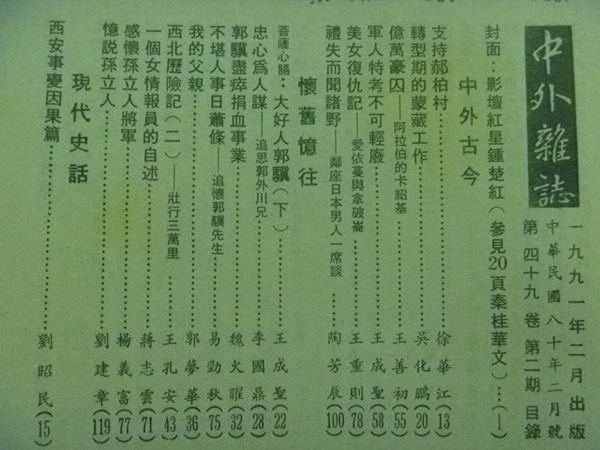 中外雜誌
一九九一年二月出版
中華民國八十年二月號
第四十九卷第二期目錄
封面：影壇紅星鍾楚紅（參見20頁秦桂華文）…(1)
中外古今
支持郝柏村……徐華江(13)
轉型期的蒙藏工作……吳化鵬(20)
億萬豪囚——阿拉伯的卡紹基……王善初(55)
軍人特考不可輕廢……王成聖(58)
美女復仇記——愛依蔓與拿破崙……王重則(78)
禮失而聞諸野——鄰座日本男人一席談……陶芳辰(100)
懷舊憶往
菩薩心腸：大好人郭驥（下）……王成聖(22)
忠心爲人謀——追思郭外川兄……李國鼎(28)
郭驥盡瘁捐血事業……魏火曜(32)
不堪人事日蕭條——追懷郭驥先生……易勁秋(75)
我的父親……郭夢華(36)
西北歷險記（二）——壯行三萬里……王孔安(43)
一個女情報員的自述……蔣志雲(71)
感懷孫立人將軍……楊義富(77)
憶説孫立人……劉建章(119)
現代史話
西安事變因果篇……劉昭民(15)